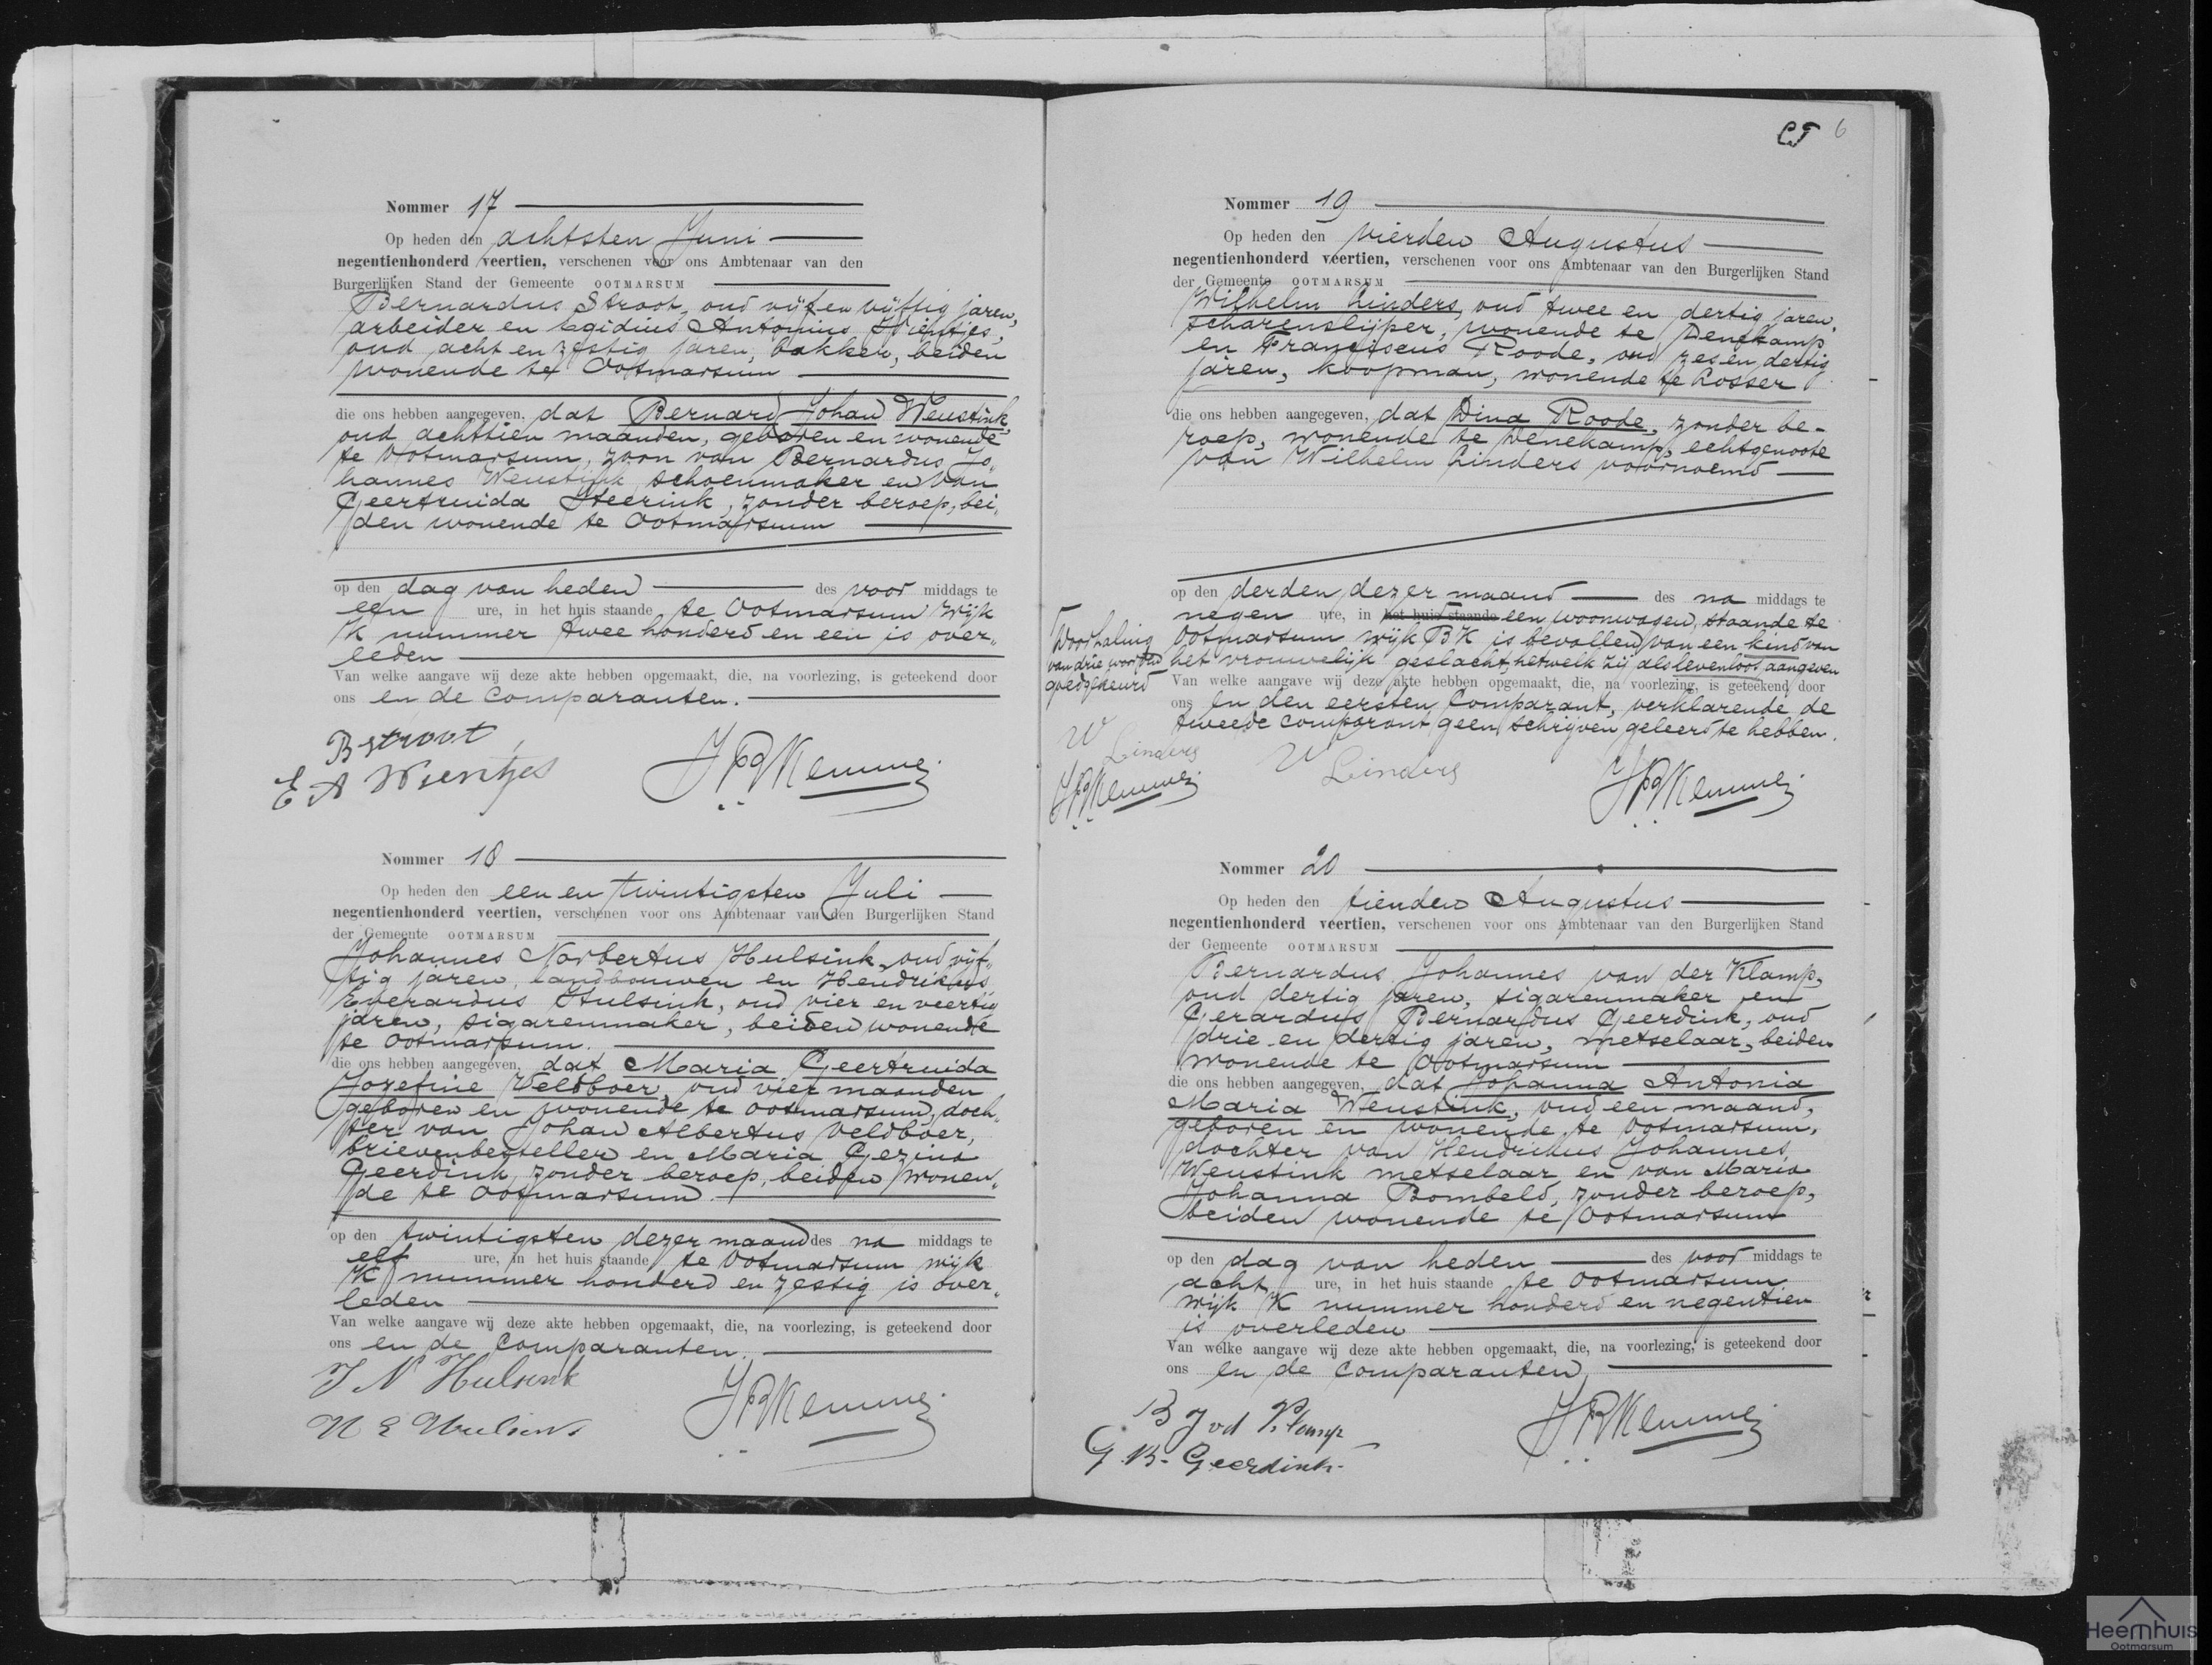 Nommer 17
Op heden den achtsten Juni
negentienhonderd veertien, verschenen voor ons Ambtenaar van den
Burgerlijken Stand der Gemeente OOTMARSUM
Bernardus Stroot, oud vijf en vijftig jaren,
arbeider en Egidius Antonius Wientjes,
oud acht en zestig jaren, bakker, beiden
wonende te Ootmarsum
die ons hebben aangegeven, dat Bernard Johan Weustink,
oud achttien maanden, geboren en wonende
te Ootmarsum, zoon van Bernardus Jo„
hannes Weustink, schoenmaker en van
Geertruida Steerink, zonder beroep, bei„
den wonende te Ootmarsum
op den dag van heden des voor middags te
een ure, in het huis staande te Ootmarsum Wijk
K nummer twee honderd en een is over„
leden
Van welke aangave wij deze akte hebben opgemaakt, die, na voorlezing, is geteekend door
ons en de comparanten.
B Stroot
E A Wientjes JPBKemmej
Nommer 18
Op heden den een en twintigsten Juli
negentienhonderd veertien, verschenen voor ons Ambtenaar van den Burgerlijken Stand
der Gemeente OOTMARSUM
Johannes Norbertus Hulsink, oud vijf„
tig jaren, landbouwer en Hendrikus
Everardus Hulsink, oud vier en veertig
jaren, sigarenmaker, beiden wonende
te Ootmarsum.
die ons hebben aangegeven, dat Maria Geertruida
Jozefine Veldboer, oud vier maanden
geboren en wonende te Ootmarsum, doch„
ter van Johan Albertus Veldboer,
brievenbesteller en Maria Gezina
Geerdink, zonder beroep, beiden wonen„
de te Ootmarsum.
op den twintigsten dezer maand des na middags te
elf ure, in het huis staande te Ootmarsum wijk
K nummer honderd en zestig is over„
leden
Van welke aangave wij deze akte hebben opgemaakt, die, na voorlezing, is geteekend door
ons en de Comparanten.
J N Hulsink
H E Hulsink JPBKemmej
6
Nommer 19
Op heden den vierden Augustus
negentienhonderd veertien, verschenen voor ons Ambtenaar van den Burgerlijken Stand
der Gemeente OOTMARSUM
Wilhelm Linders, oud twee en dertig jaren,
scharenslijper, wonende te Denekamp
en Franciscus Roode, oud zes en dertig
jaren, koopman, wonende te Losser
die ons hebben aangegeven, dat Dina Roode, zonder be-
roep, wonende te Denekamp, echtgenoote
van Wilhelm Linders voornoemd
op den derden dezer maand des na middags te
negen ure, in het huis staande een woonwagen, staande te
Ootmarsum wijk BK is bevallen van een kind van
het vrouwelijk geslacht, hetwelk zij als levenloos aangeven
Van welke aangave wij deze akte hebben opgemaakt, die, na voorlezing, is geteekend door
ons en den eersten Comparant, verklarende de
tweede comparant geen schrijven geleerd te hebben.
Doorhaling
van drie woorden
goedgekeurd
W Linders
JPBKemmej
W Linders JPBKemmej
Nommer 20
Op heden den tienden Augustus
negentienhonderd veertien, verschenen voor ons Ambtenaar van den Burgerlijken Stand
der Gemeente OOTMARSUM
Bernardus Johannes van der Klamp,
oud dertig jaren, sigarenmaker en
Gerardus Bernardus Geerdink, oud
drie en dertig jaren, metselaar, beiden
wonende te Ootmarsum
die ons hebben aangegeven, dat Johanna Antonia
Maria Weustink, oud een maand,
geboren en wonende te Ootmarsum,
dochter van Hendrikus Johannes
Weustink metselaar en van Maria
Johanna Bombeld, zonder beroep,
beiden wonende te Ootmarsum
op den dag van heden des voor middags te
acht ure, in het huis staande te Ootmarsum
wijk K nummer honderd en negentien
is overleden
Van welke aangave wij deze akte hebben opgemaakt, die, na voorlezing, is geteekend door
ons en de comparanten
B J vd Klamp
G. B. Geerdink. JPBKemmej
Heemhuis
Ootmarsum